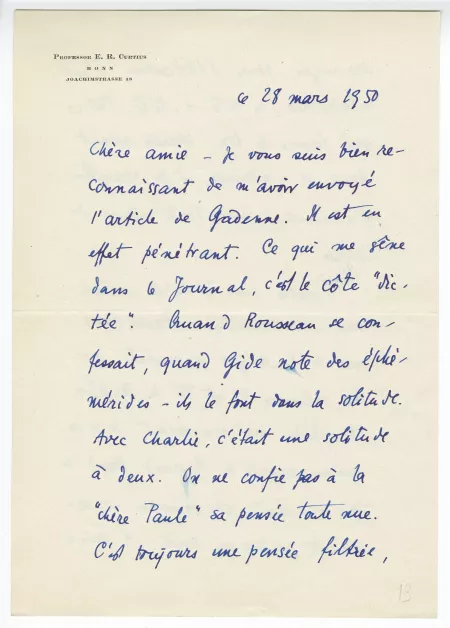 Professor E. R. Curtius
BONN
Joachimstrasse 18
le 28 mars 1950
Chère amie – Je vous suis bien re-
connaissant de m'avoir envoyé
l'article de Gadenne. Il est en
effet pénétrant. Ce qui me gêne
dans le Journal, c'est le côté "dic-
tée". Quand Rousseau se con-
fessait, quand Gide note des éphé-
mérides – ils le font dans la solitude.
Avec Charlie, c'était une solitude
à deux. On ne confie pas à la
"chère Paule" sa pensée toute nue.
C'est toujours une pensée filtrée,
13